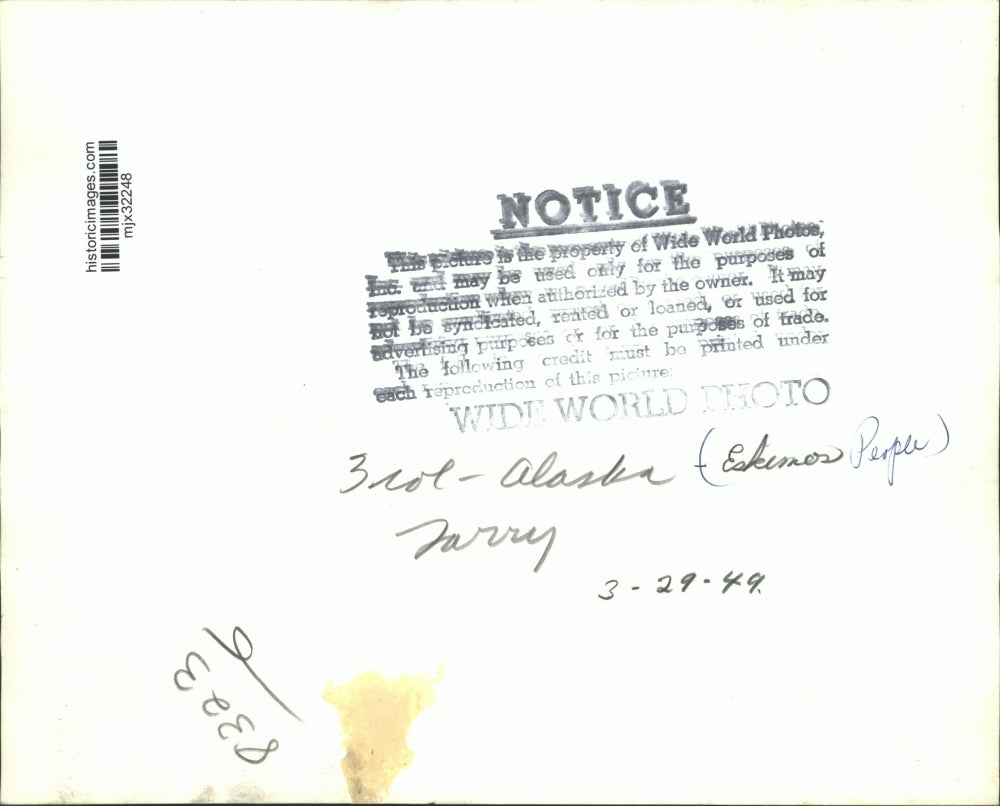 historicimages.com
mjx32248
NOTICE
This picture is the property of Wide World Photos,
Inc. and may be used only for the purposes of
reproduction when authorized by the owner. It may
not be syndicated, rented or loaned, or used for
advertising purposes or for the purposes of trade.
The following credit must be printed under
each reproduction of this picture:
WIDE WORLD PHOTO
3 col - Alaska (Eskimos People)
3-29-49.
8323